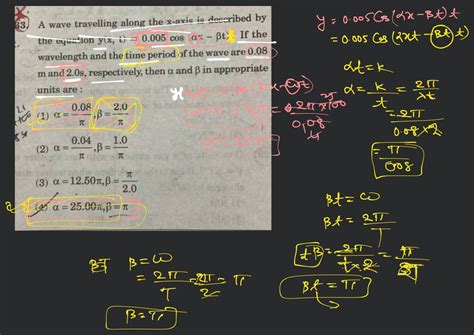 33. A wave travelling along the x-axis is described by
the equation y(x, t) = 0.005 cos (αx – βt). If the
wavelength and the time period of the wave are 0.08
m and 2.0s, respectively, then α and β in appropriate
units are :
(1) α = 0.08/π , β = 2.0/π
(2) α = 0.04/π , β = 1.0/π
(3) α = 12.50π, β = π/2.0
(4) α = 25.00π, β = π
y = 0.005 Cos (αx - βt) t
= 0.005 Cos (αxt - βt) t
αt = k
α = k/t = 2π/λt
= 2π/0.08×2
= π/0.08
βt = ω
βt = 2π/T
tβ = 2π/t×2 =
βt = π
βT β = ω
= 2π/T 2π/2 = π
β = π